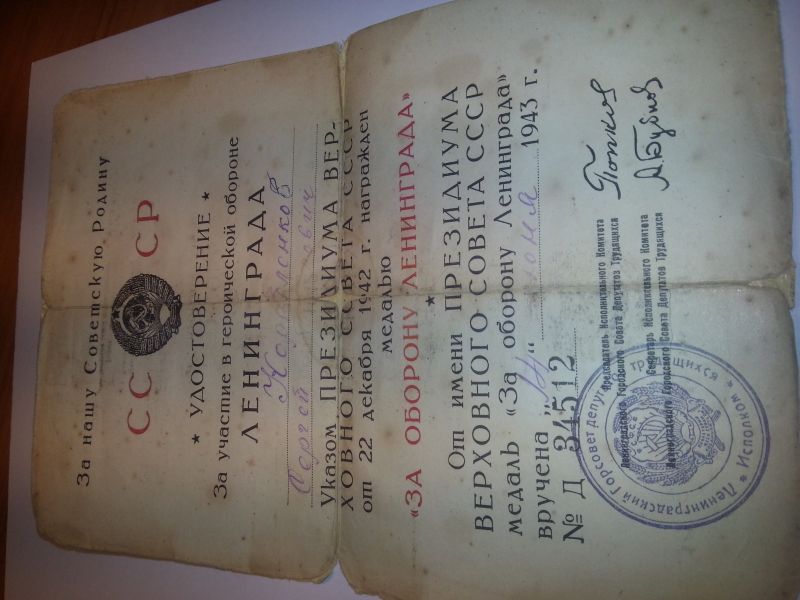 За нашу Советскую Родину
СССР
★ УДОСТОВЕРЕНИЕ ★
За участие в героической обороне
ЛЕНИНГРАДА
Сергей
Указом ПРЕЗИДИУМА ВЕР-
ХОВНОГО СОВЕТА СССР
от 22 декабря 1942 г. награжден
медалью
«ЗА ОБОРОНУ ЛЕНИНГРАДА»
★
От имени ПРЕЗИДИУМА
ВЕРХОВНОГО СОВЕТА СССР
медаль «За оборону Ленинграда»
вручена „ “ июня 1943 г.
№ Д 34512
Председатель Исполнительного Комитета
Ленинградского Городского Совета Депутатов Трудящихся
Попков
Секретарь Исполнительного Комитета
Ленинградского Городского Совета Депутатов Трудящихся
А. Бубнов
Ленинградский Горсовет депут. трудящихся ★ Исполком ★